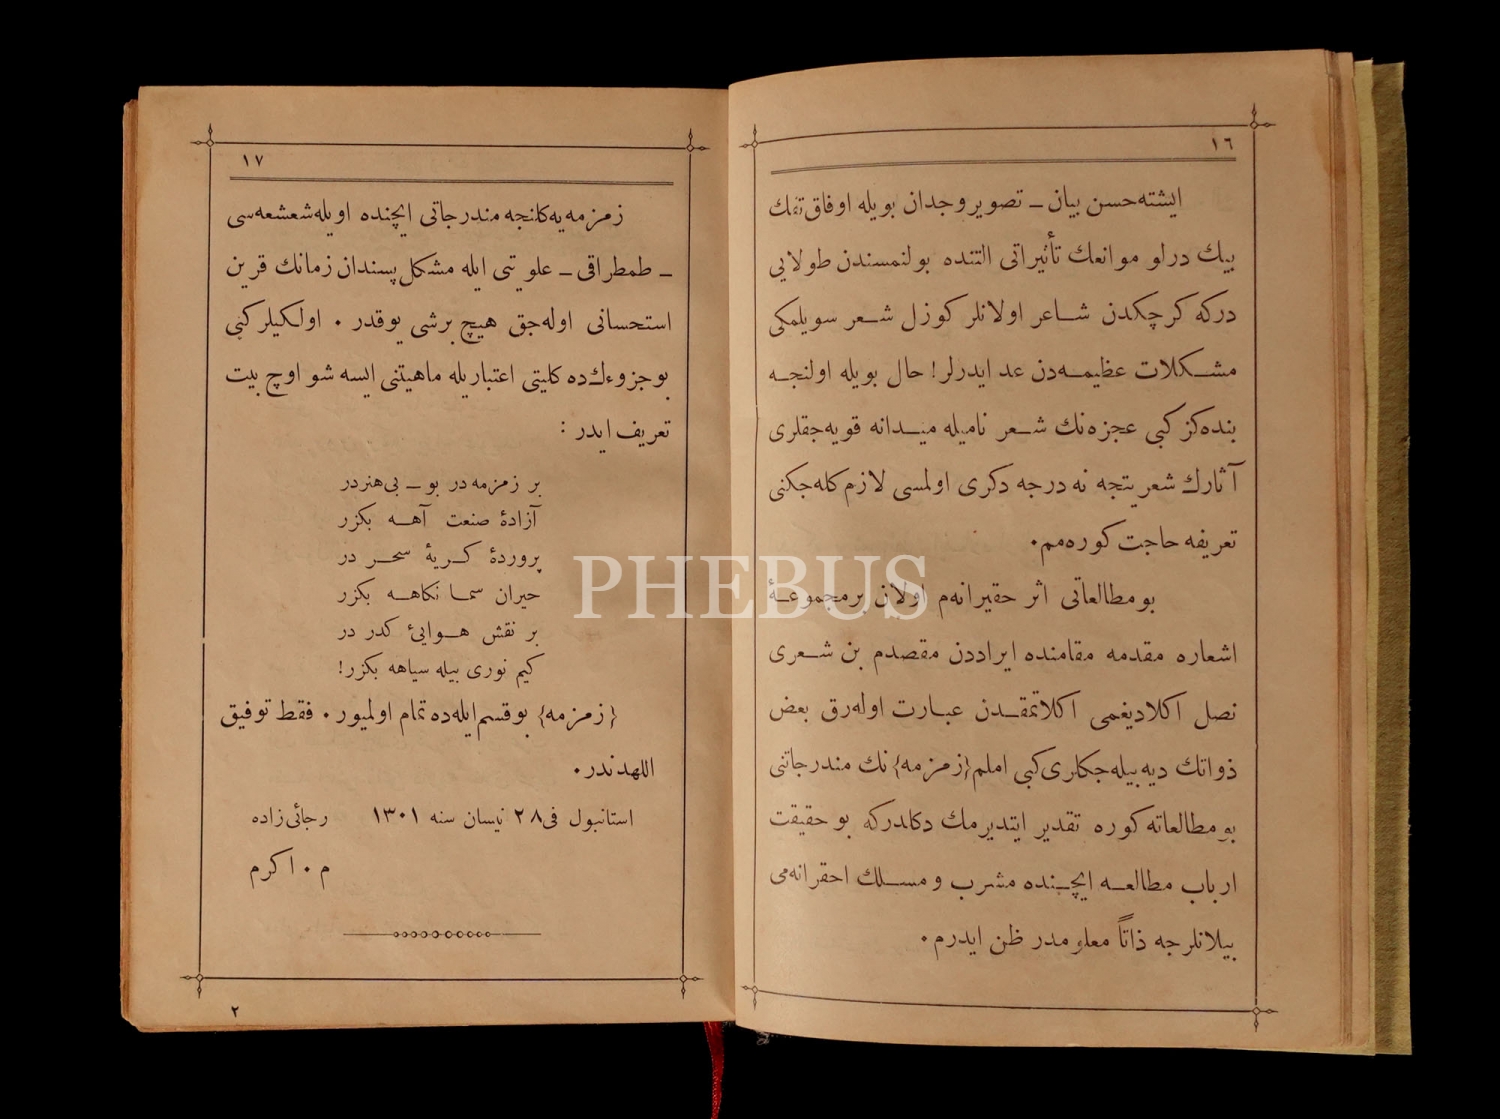 ١٦
ايشته حسن بيان ـ تصوير وجدان بويله اوفاق تفك
بيك درلو موانعك تأثيراتى التنده بولنمسندن طولايى
دركه كرچكدن شاعر اولانلر كوزل شعر سويلمكى
مشكلات عظيمه‌دن عد ايدرلر! حال بويله اولنجه
بنده‌كز كبى عجزه‌نك شعر ناميله ميدانه قويه‌جقلرى
آثارك شعريتجه نه درجه دكرى اولمسى لازم كله‌جكنى
تعريفه حاجت كوره‌مم٠
بو مطالعاتى اثر حقيرانه‌م اولان بر مجموعهٔ
اشعاره مقدمه مقامنده ايراددن مقصدم بن شعرى
نصل اكلاديغمى اكلاتمقدن عبارت اوله‌رق بعض
ذواتك ديه بيله‌جكلرى كبى املم {زمزمه} نك مندرجاتنى
بو مطالعاته كوره تقدير ايتديرمك دكلدركه بو حقيقت
ارباب مطالعه ايچنده مشرب و مسلك احقرانه‌مى
بيلانلرجه ذاتاً معلومدر ظن ايدرم٠
١٧
زمزمه‌يه كلنجه مندرجاتى ايچنده اويله شعشعه‌سى
ـ طمطراقى ـ علويتى ايله مشكل پسندان زمانك قرين
استحسانى اوله‌جق هيچ بر شى يوقدر ٠ اولكيلر كبى
بو جزوءك ده كليتى اعتباريله ماهيتنى ايسه شو اوچ بيت
تعريف ايدر :
بر زمزمه‌در بو ـ بى هنردر
آزادهٔ صنعت آهه بكزر
پروردهٔ كريهٔ سحر در
حيران سما نكاهه بكزر
بر نقش هوايئ كدر در
كيم نورى بيله سياهه بكزر!
{زمزمه} بو قسم ايله‌ده تمام اولميور ٠ فقط توفيق
اللهدندر٠
استانبول فى ٢٨ نيسان سنه ١٣٠١ رجائى زاده
م ٠ اكرم
٢
PHEBUS